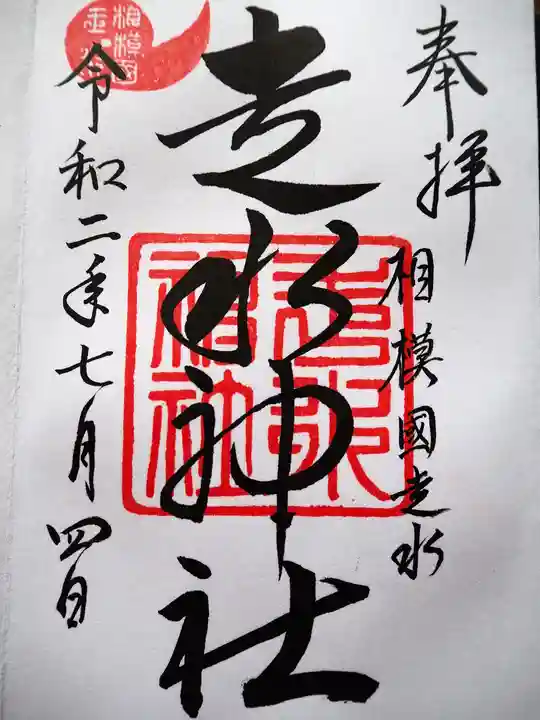 奉拝
相模國走水
走水神社
走水神社
令和二年七月四日
相模国